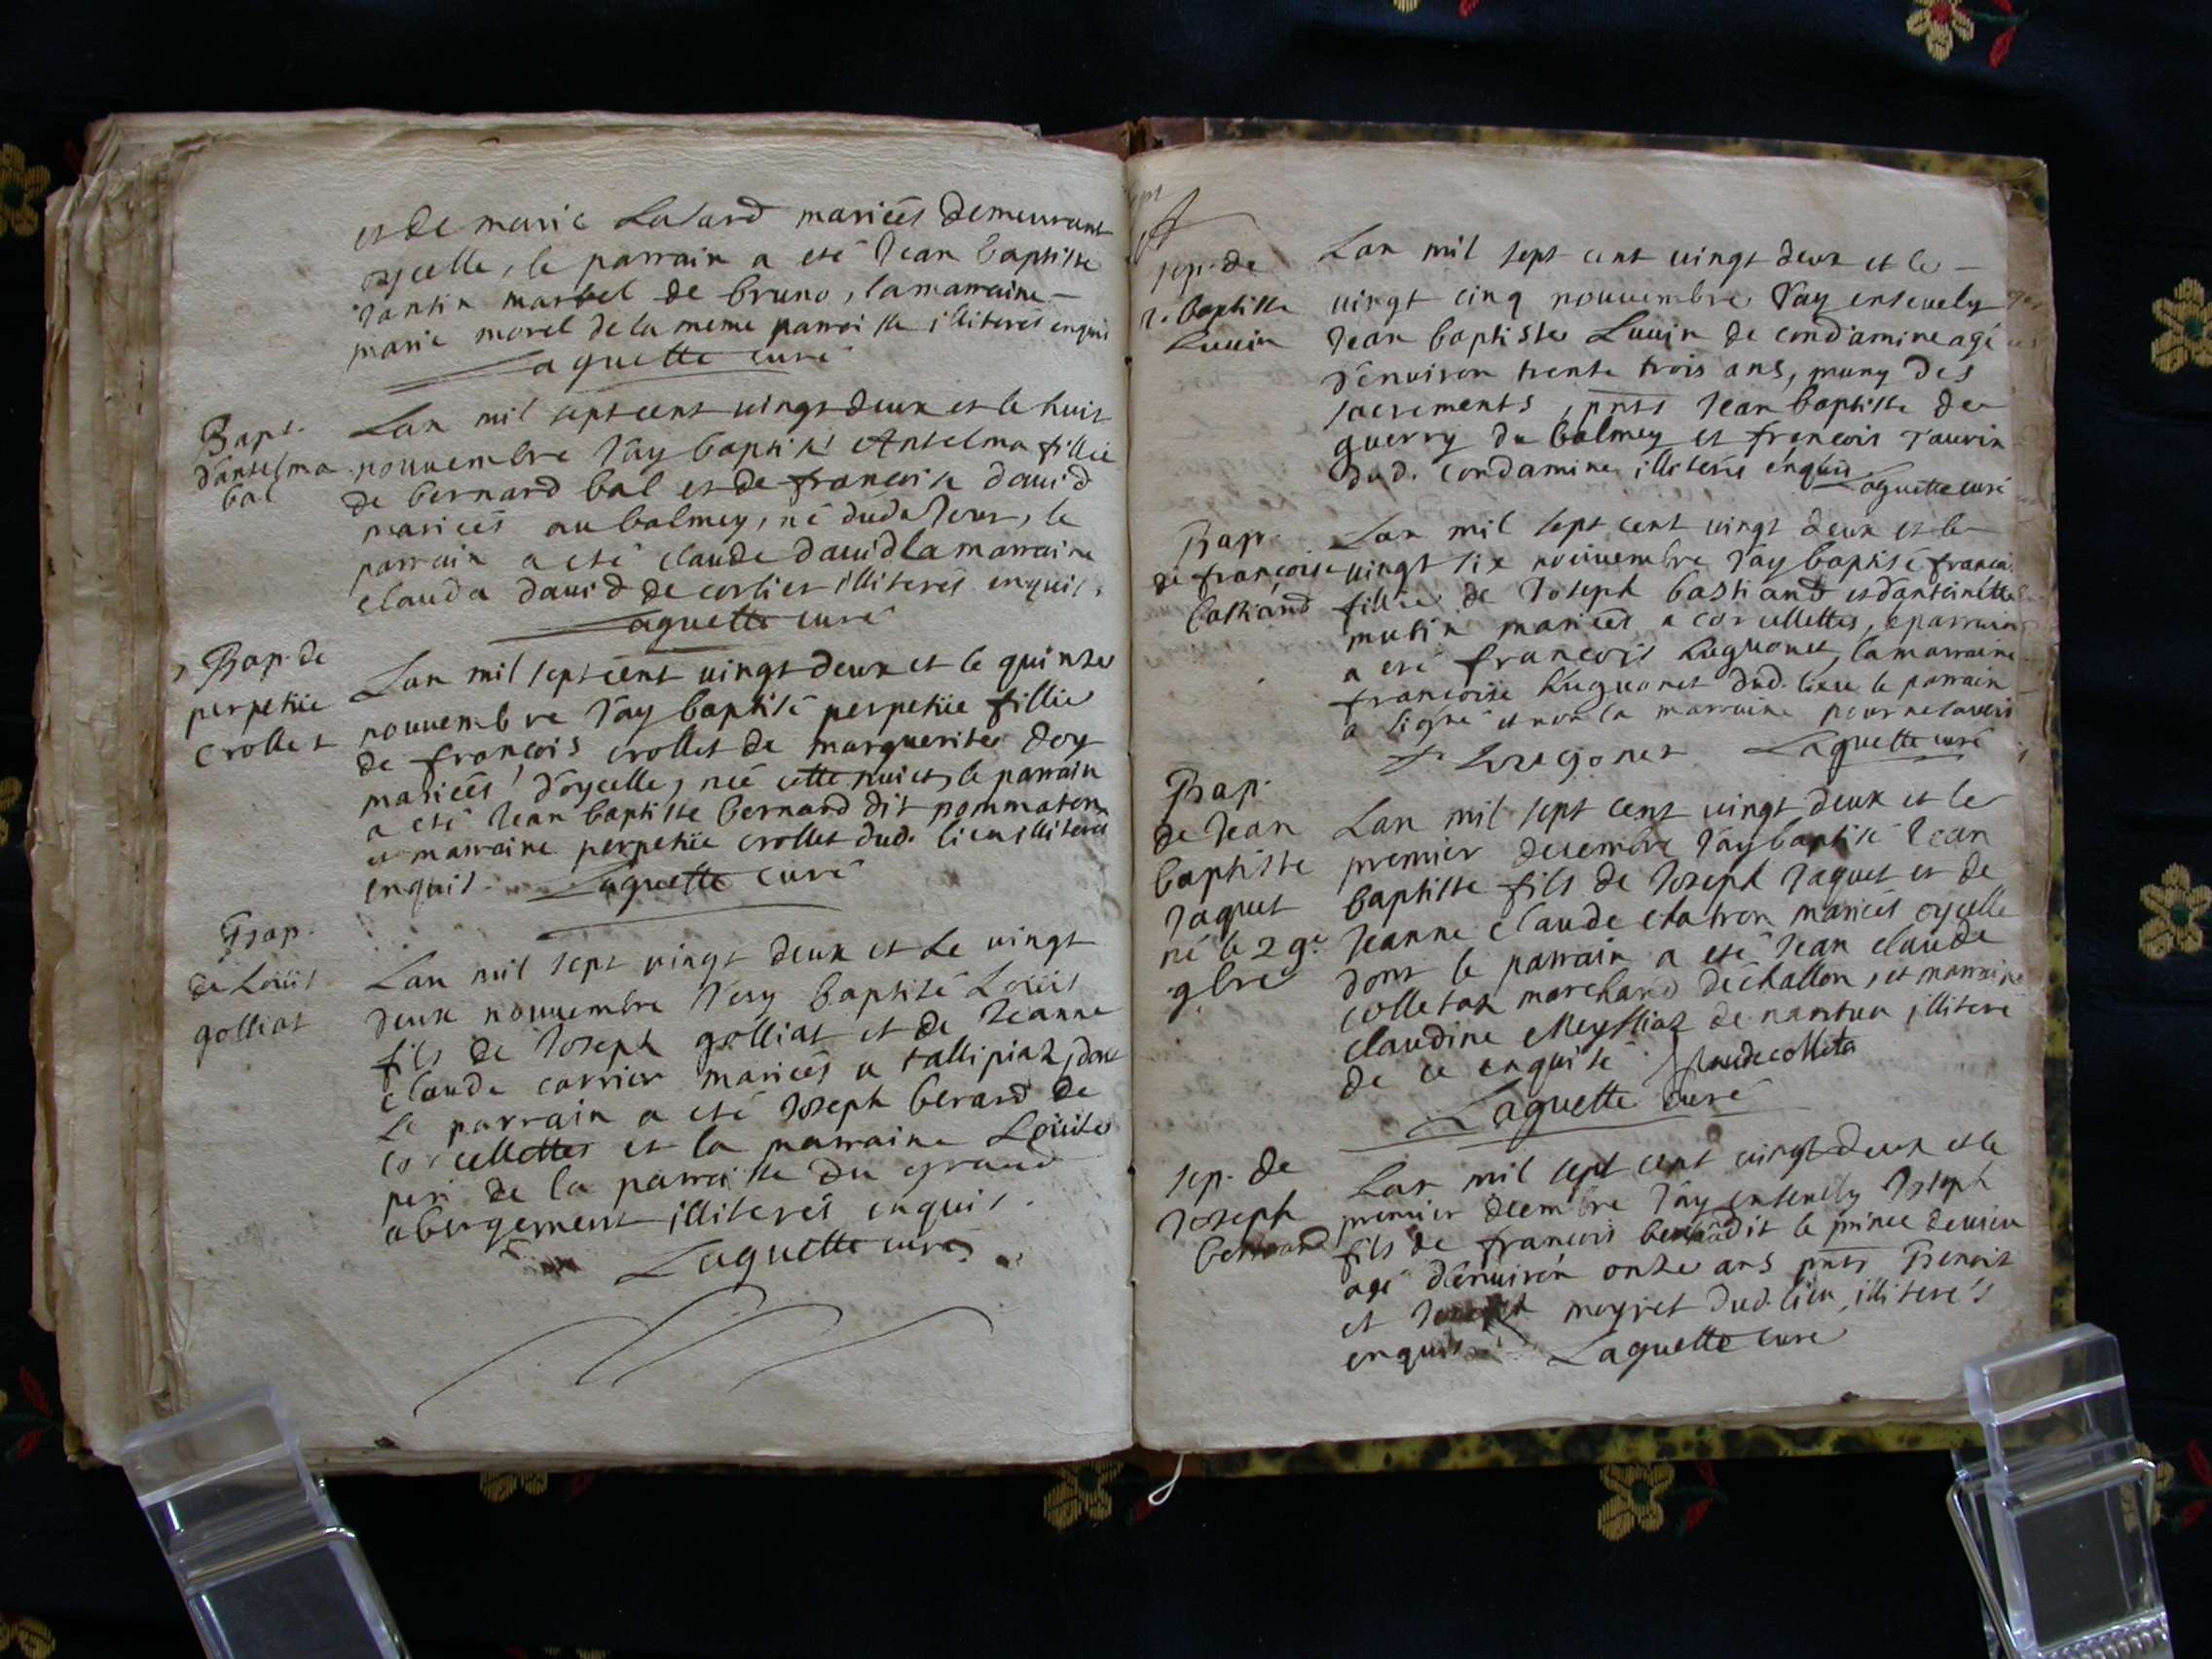 et de marie Lasard mariéés demeurant
oycelle, le parrain a eté Jean baptiste
Jantin marbel de bruno, la marraine
marie morel de la meme parroisse illiterés enquis
Laguette curé
Bapt.
d'anselma
bal
Lan mil sept cent vingt deux et le huit
nouvembre J'ay baptisé Anselma fillie
de bernard bal et de francoise david
mariéés au balmey, né dud. Jour, le
parrain a eté claude david la marraine
clauda david de corlier illiterés enquis,
Laguette curé
Bap. de
perpetüe
crollet
Lan mil sept cent vingt deux et le quinze
nouvembre J'ay baptisé perpetüe fillie
de francois crollet de marguerite doy
mariéés d'oycelle, néé cette nuict, le parrain
a eté Jean baptiste bernard dit pommaton
et marraine perpetüe crollet dud. lieu illiterés
enquis. Laguette curé
Bap.
de Loüis
golliat
Lan mil sept vingt deux et Le vingt
deux nouvembre J'ey baptisé Loüis
fils de Joseph golliat et de Jeanne
claude carrier mariéés a tallipiaz, dont
Le parrain a eté Joseph berard de
corcellettes et la marraine Loüise
peri de la parroisse du grand
abergement illiterés enquis.
Laguette curé
sep. de
J. baptiste
Luuin
Lan mil sept cent vingt deux et le
vingt cinq nouvembre J'ay ensevely
Jean baptiste Luuin de condamine agé
d'enuiron trente trois ans, muny des
sacrements, pnts Jean baptiste de
guerry du balmey et francois Taurin
dud. condamine illiterés enquis Laguette curé
Bap.
de francoise
bastiand
Lan mil sept cent vingt deux et le
vingt six nouvembre J'ay baptisé francoi
fillie de Joseph bastiand et d'antoinette
mutin mariéés a corcellettes, le parrain
a eté francois Huguonet, la marraine
francoise Huguonet dud. lieu le parrain
a signé et non la marraine pour ne scavoir
f. hugonet Laguette curé
Bap.
de Jean
baptiste
Jaquet
né le 29e
9bre
Lan mil sept cent vingt deux et le
premier decembre J'ay baptisé Jean
baptiste fils de Joseph Jaquet et de
Jeanne claude chatron mariéés oycelle
dont le parrain a eté Jean claude
colletaz marchand d'échallon, et marraine
claudine Meyssiaz de nantua illiteré
de ce enquise J claude colleta
Laguette curé
sep. de
Joseph
bernard
Lan mil sept cent vingt deux et le
premier decembre J'ay ensevely Joseph
fils de francois bernard dit le prince de
agé d'enuiron onze ans pnts Benoit
et Joseph moyret dud. lieu, illiterés
enquis Laguette curé